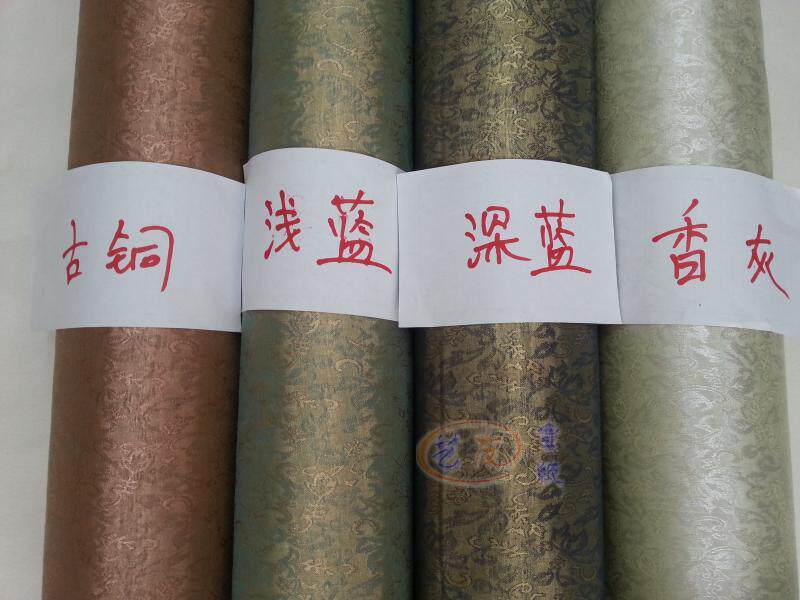 古铜
浅蓝
深蓝
香灰